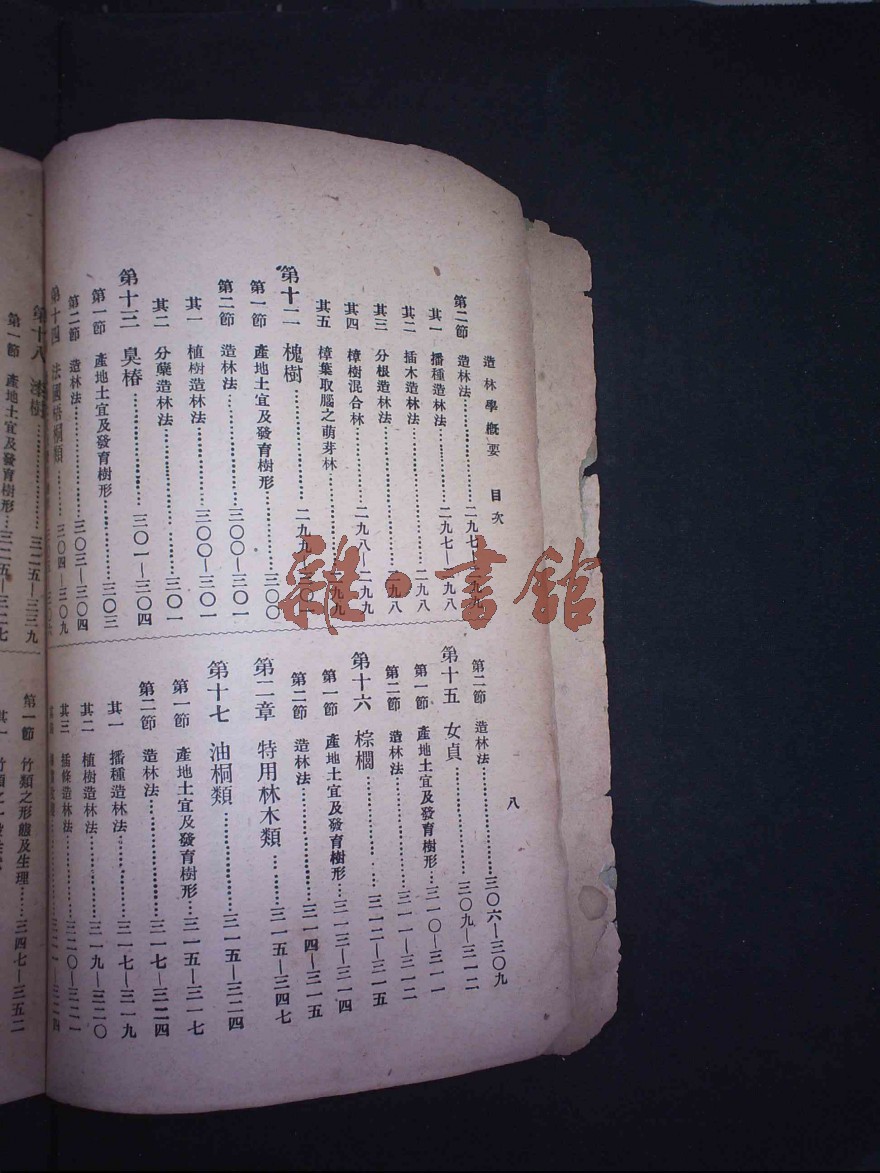 造林學概要 目次 八
第二節 造林法…………二九七—二九九
其一 播種造林法…………二九七—二九八
其二 插木造林法…………二九八
其三 分根造林法…………二九八
其四 樟樹混合林…………二九八—二九九
其五 樟葉取腦之萌芽林…………二九九
第十二 槐樹…………二九九—三〇一
第一節 產地土宜及發育樹形…………三〇〇
第二節 造林法…………三〇〇—三〇一
其一 植樹造林法…………三〇〇—三〇一
其二 分蘗造林法…………三〇一
第十三 臭椿…………三〇一—三〇四
第一節 產地土宜及發育樹形…………三〇三
第二節 造林法…………三〇三—三〇四
第十四 法國梧桐類…………三〇四—三〇九
第二節 造林法…………三〇六—三〇九
第十五 女貞…………三〇九—三一二
第一節 產地土宜及發育樹形…三一〇—三一一
第二節 造林法…………三一一—三一二
第十六 棕櫚…………三一二—三一五
第一節 產地土宜及發育樹形…三一三—三一四
第二節 造林法…………三一四—三一五
第二章 特用林木類…………三一五—三四七
第十七 油桐類…………三一五—三二四
第一節 產地土宜及發育樹形…三一五—三一七
第二節 造林法…………三一七—三二四
其一 播種造林法…………三一七—三一九
其二 植樹造林法…………三一九—三二〇
其三 插條造林法…………三二〇—三二一
第十八 漆樹…………三二五—三三九
第一節 產地土宜及發育樹形…三二五—三二七
第一節 竹類之形態及生理……三四七—三五二
其一 竹類之
雜·書館